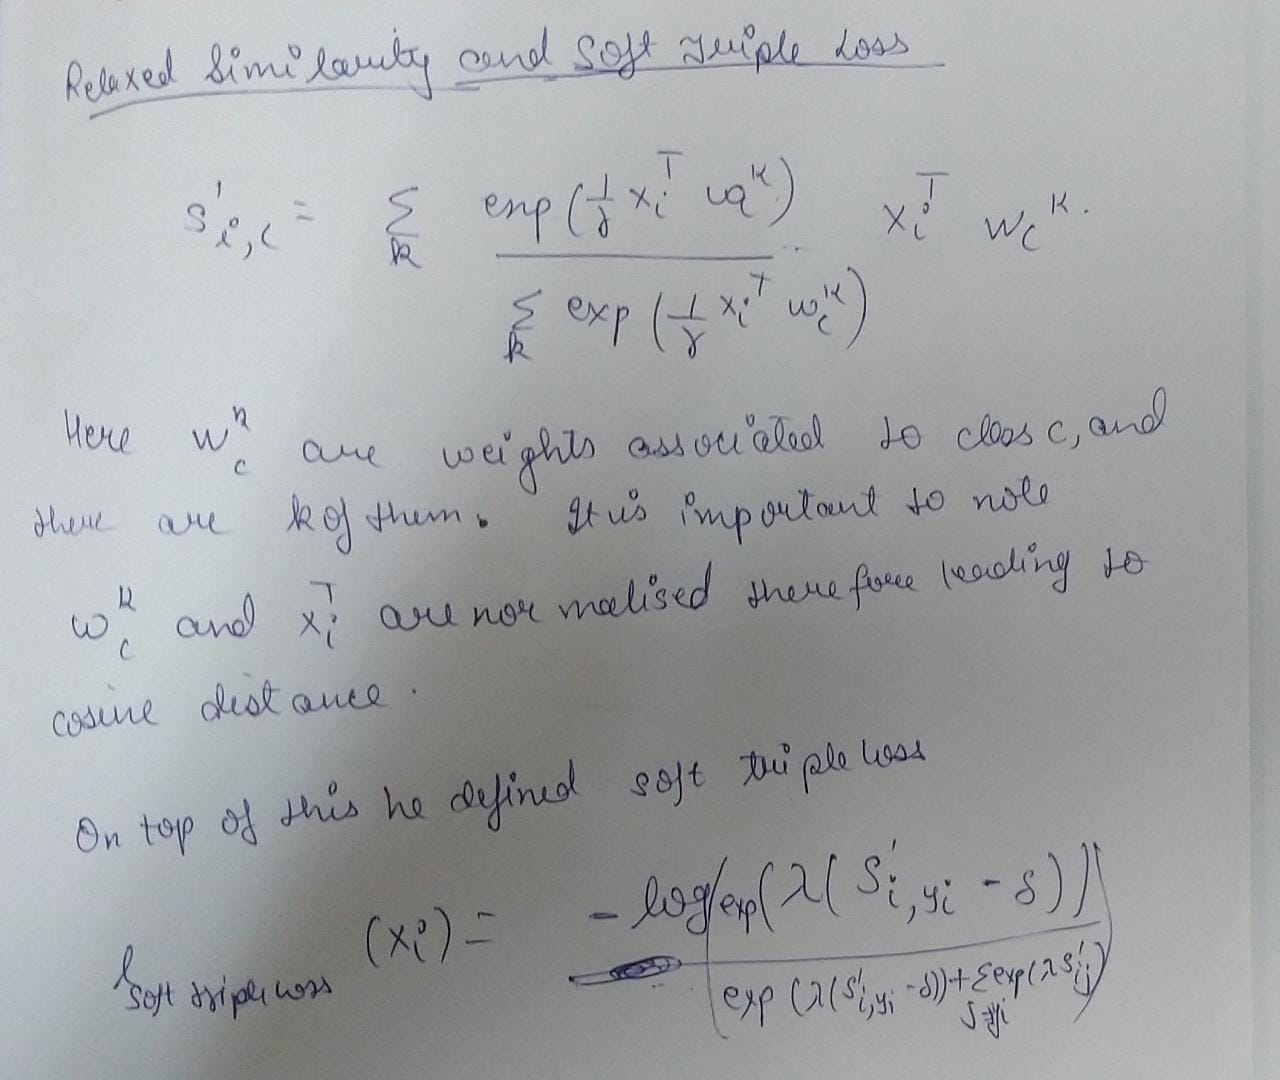 Relaxed Similarity and Soft Triple Loss
S'_{i,c} = Σ_k exp(1/γ x_i^T w_c^k) / Σ_k exp(1/γ x_i^T w_c^k) x_i^T w_c^k.
Here w_c^k are weights associated to class c, and
there are k of them. It is important to note
w_c^k and x_i^T are normalised therefore leading to
cosine distance.
On top of this he defined soft triple loss
l_{soft triple loss} (x_i) = - log( exp(λ(S'_{i,yi} - δ)) / exp(λ(S'_{i,yi} - δ)) + Σ_{j≠yi} exp(λ S'_{ij}) )